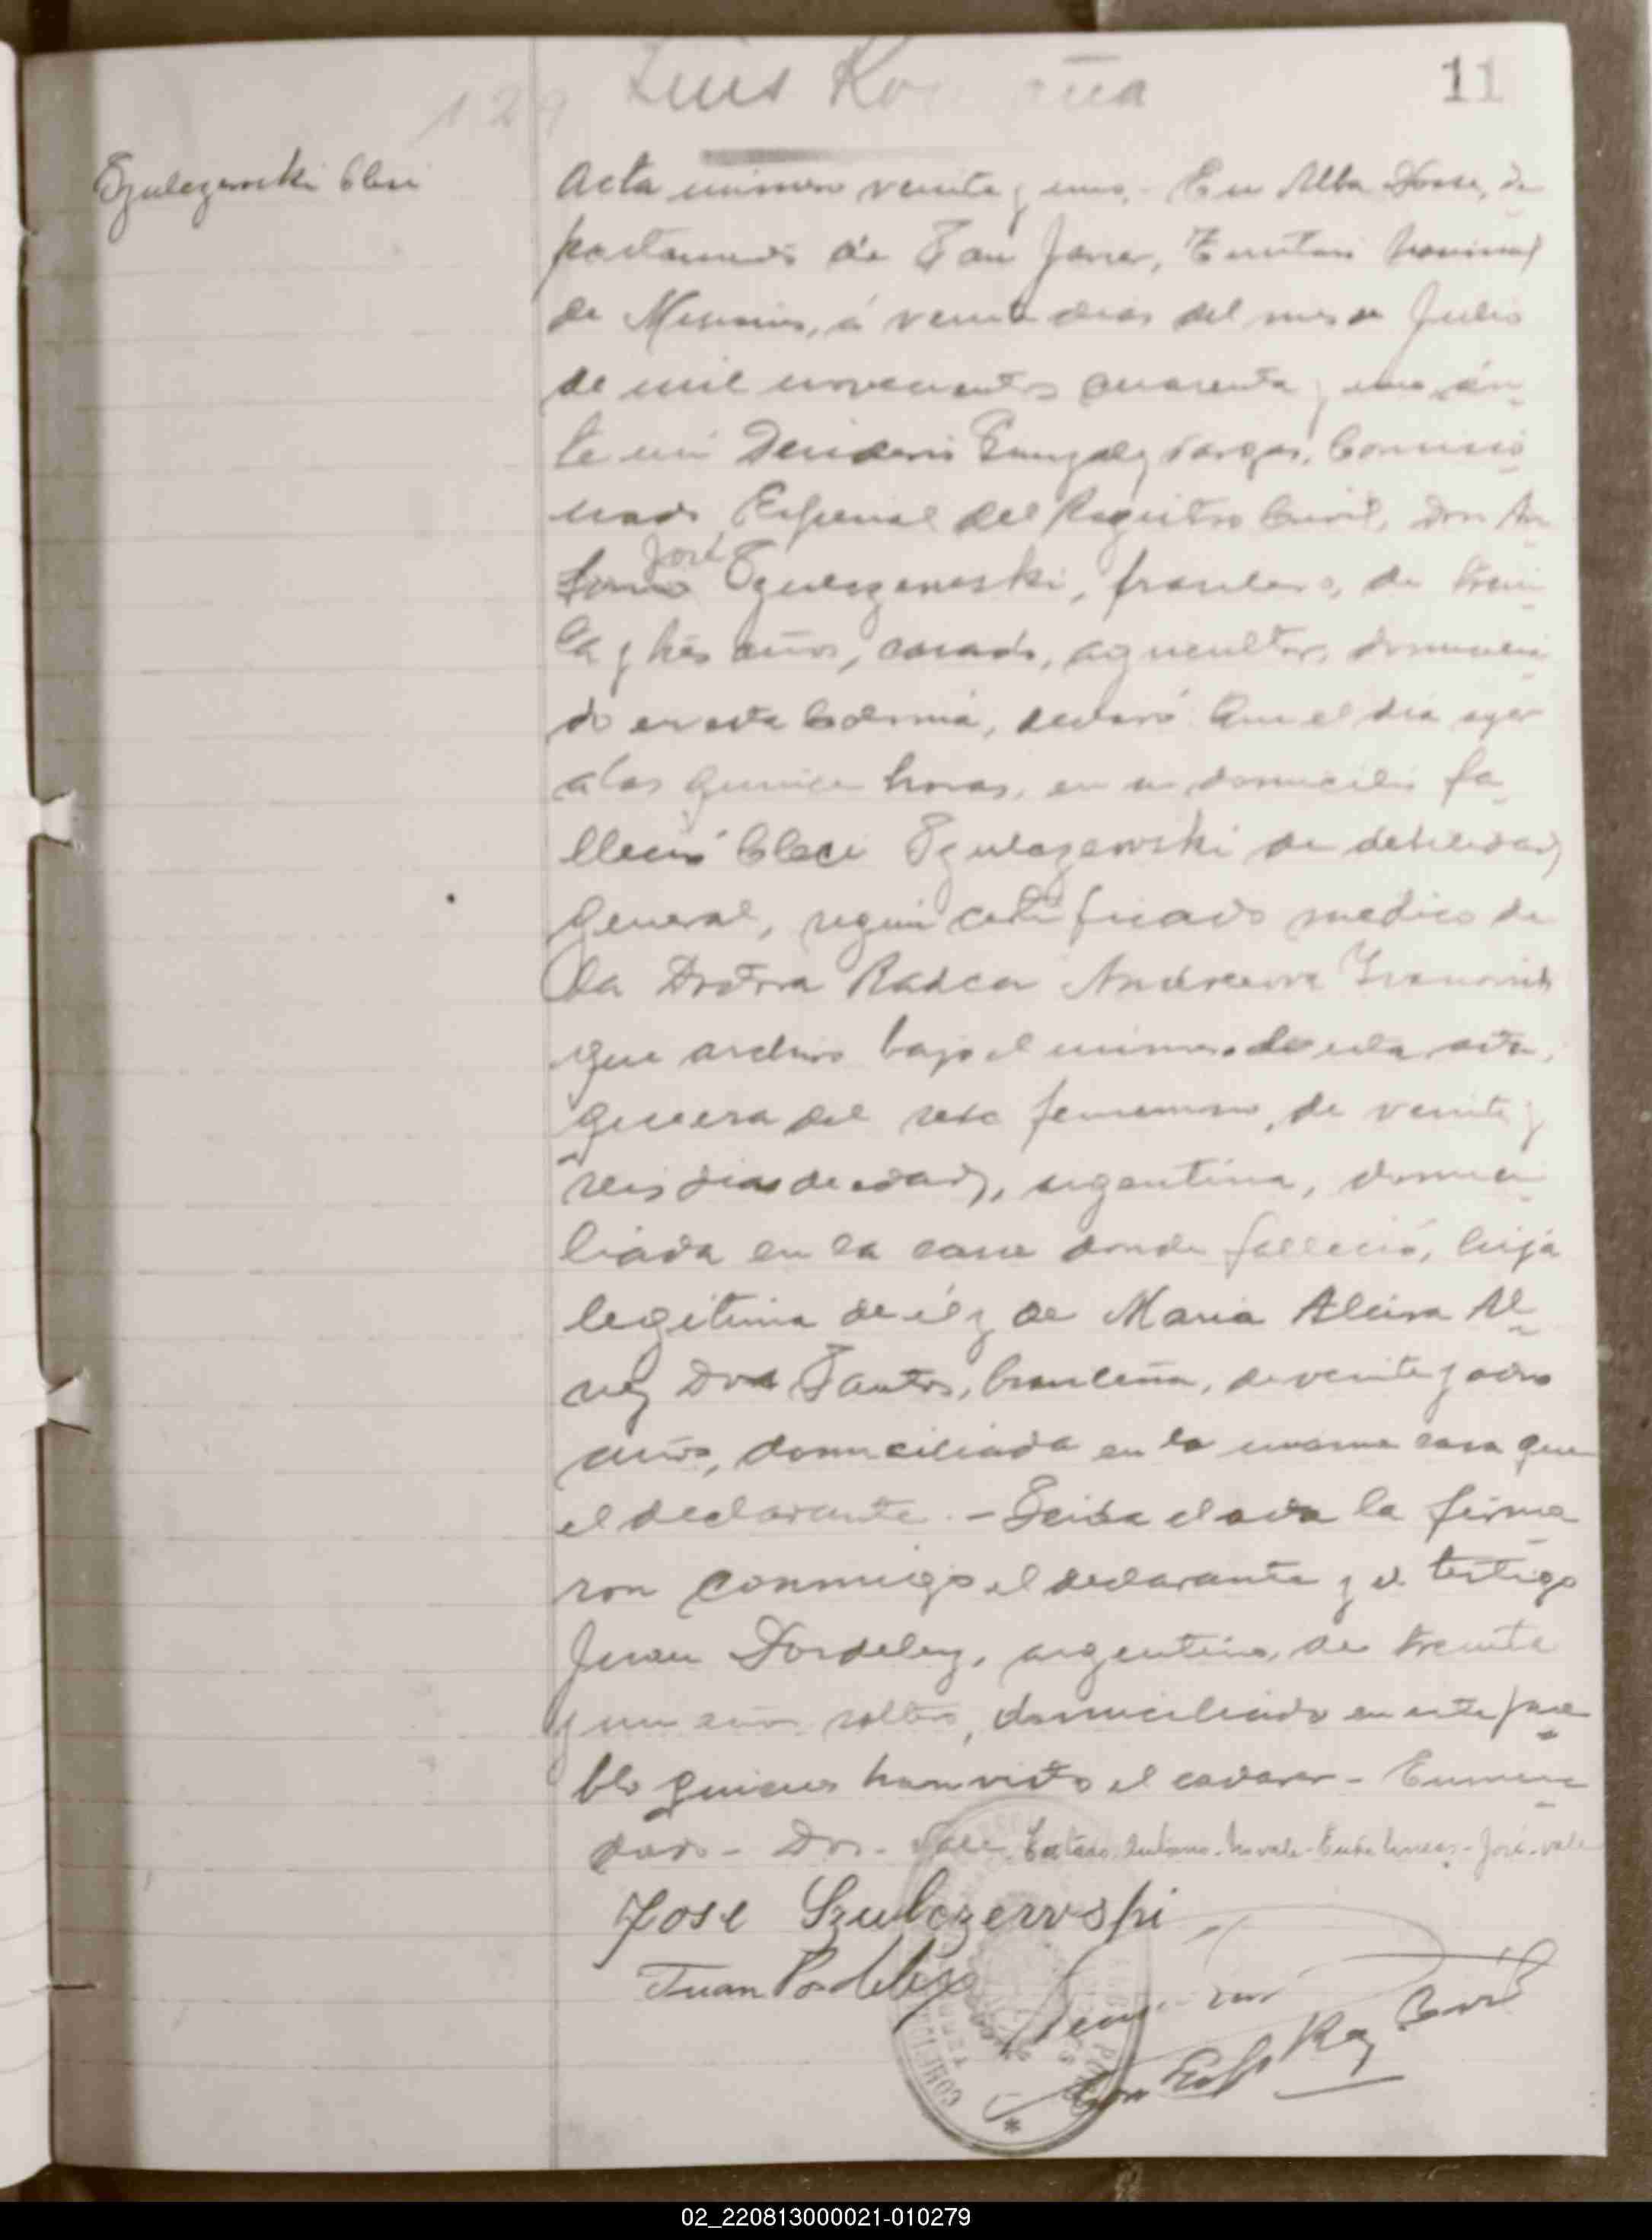 Luis
11
129
Szulczewski Cleci
Acta número veinte y uno.- En Alba Posse, de-
partamento de San Javier, Territorio Nacional
de Misiones, á veinte dias del mes de Julio
de mil novecientos cuarenta y uno, án-
te mi Desiderio Gonzalez Vargas, Comisio-
nado Especial del Registro Civil, Don An-
José
tonio Szulczewski, brasilero, de trein-
ta y tres años, casado, agricultor, domicilia-
do en esta Colonia, declaró: Que el dia ayer
a las quince horas, en su domicilio fa-
lleció Cleci Szulczewski de debilidad
general, según certificado medico de
la Doctora Radca Andreewa Ivanovich
que archivo bajo el número de esta acta,
que era del sexo femenino, de veinte y
seis dias de edad, argentina, domici-
liada en la casa donde falleció, hija
legitima de él y de Maria Alcira Al-
vez Dos Santos, brasileña, de veinte y ocho
años, domiciliada en la misma casa que
el declarante.- Leida el acta la firma-
ron conmigo el declarante y el testigo
Juan Pordelez, argentino, de treinta
y un años, soltero, domiciliado en este pue-
blo quienes han visto el cadaver - Enmen-
dado - Dos - Vale. Testado. Antonio. No vale - Entre lineas - José - vale
Jose Szulczewski
Juan Pordelez
Com Esp Reg Civil
02_220813000021-010279